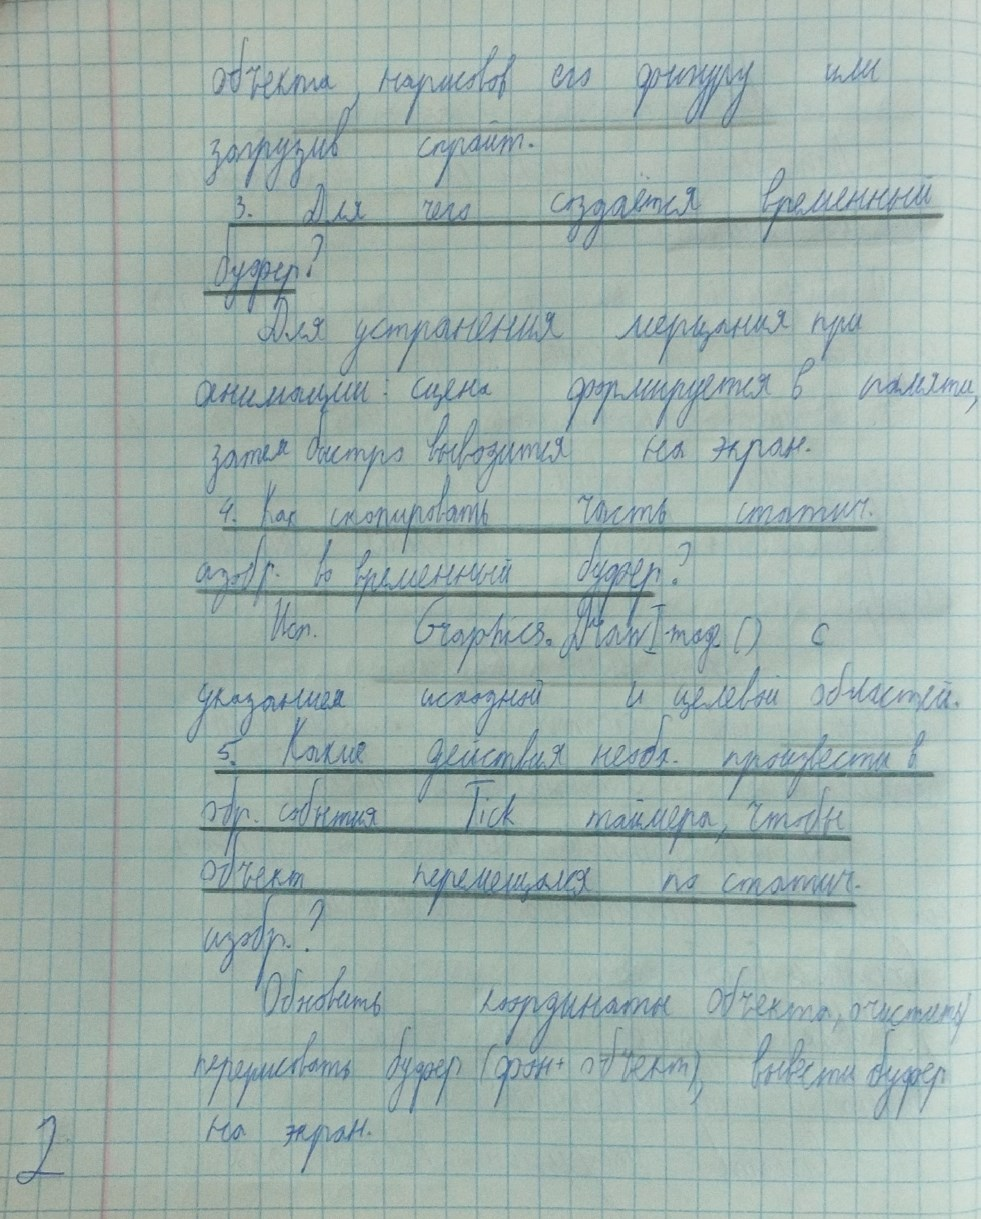 объекта, нарисовав его фигуру или
загрузив спрайт.
3. Для чего создаётся временный
буфер?
Для устранения мерцания при
анимации: сцена формируется в памяти,
затем быстро выводится на экран.
4. Как скопировать часть статич.
изобр. во временный буфер?
Исп. Graphics.DrawImage() с
указанием исходной и целевой областей.
5. Какие действия необх. произвести в
обр. события Tick таймера, чтобы
объект перемещался по статич.
изобр.?
Обновить координаты объекта, очистить/
перерисовать буфер (фон + объект), вывести буфер
на экран.
2